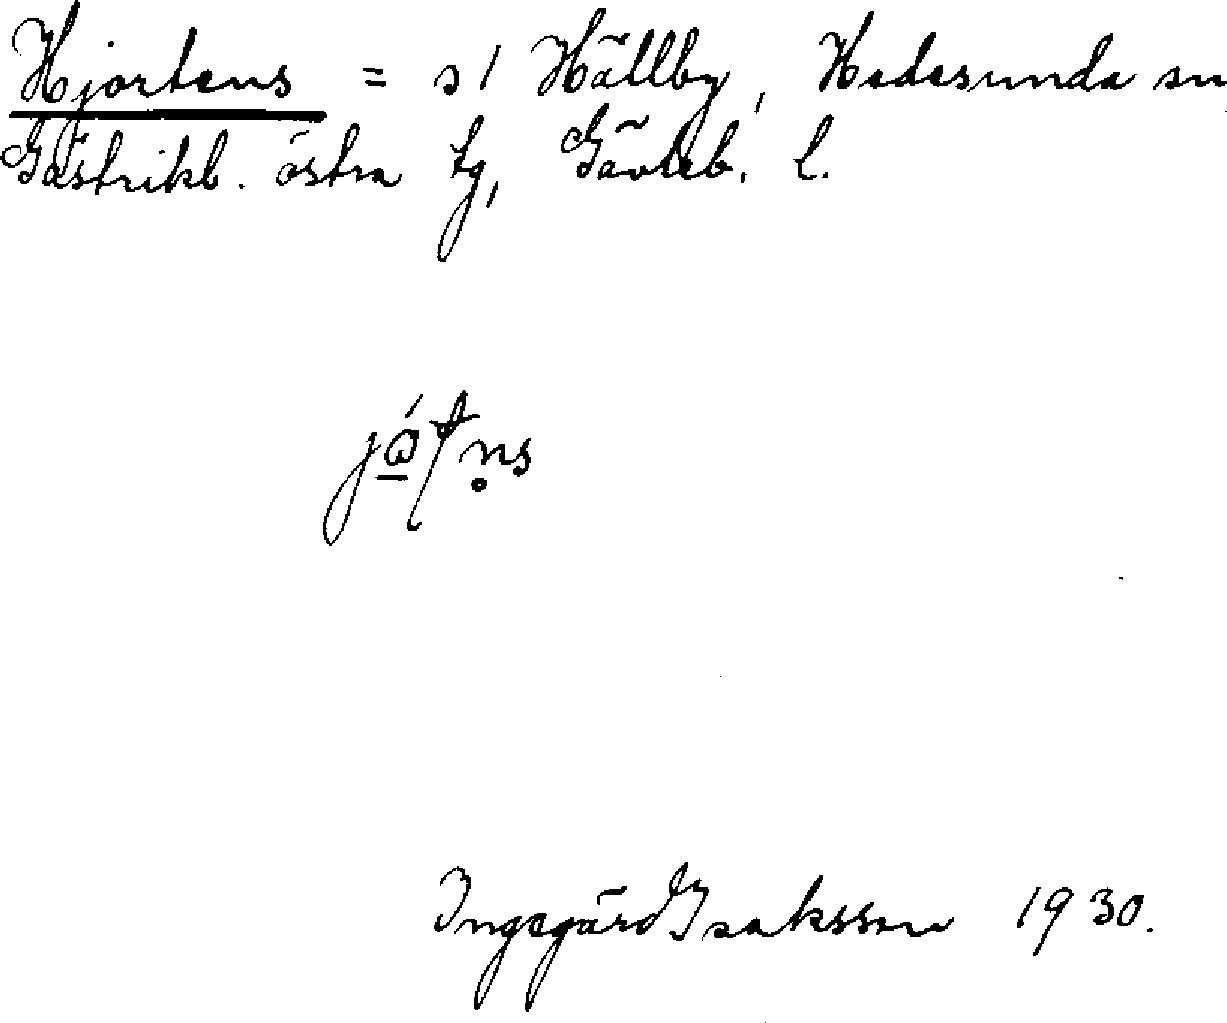 Hjortens = s/ Hällby, Hedesunda sn
Gästrikl. östra tg, Gävleb. l.
Ingegärd Isaksson 1930.